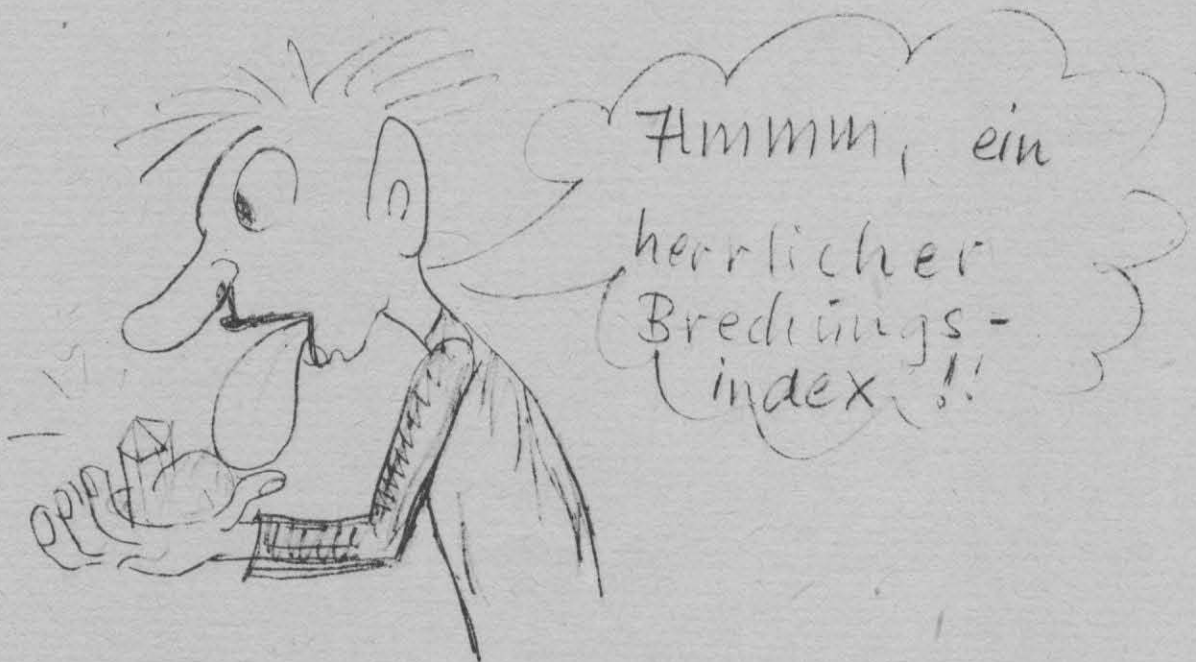 Hmmmm, ein
herrlicher
Brechungs-
index !!